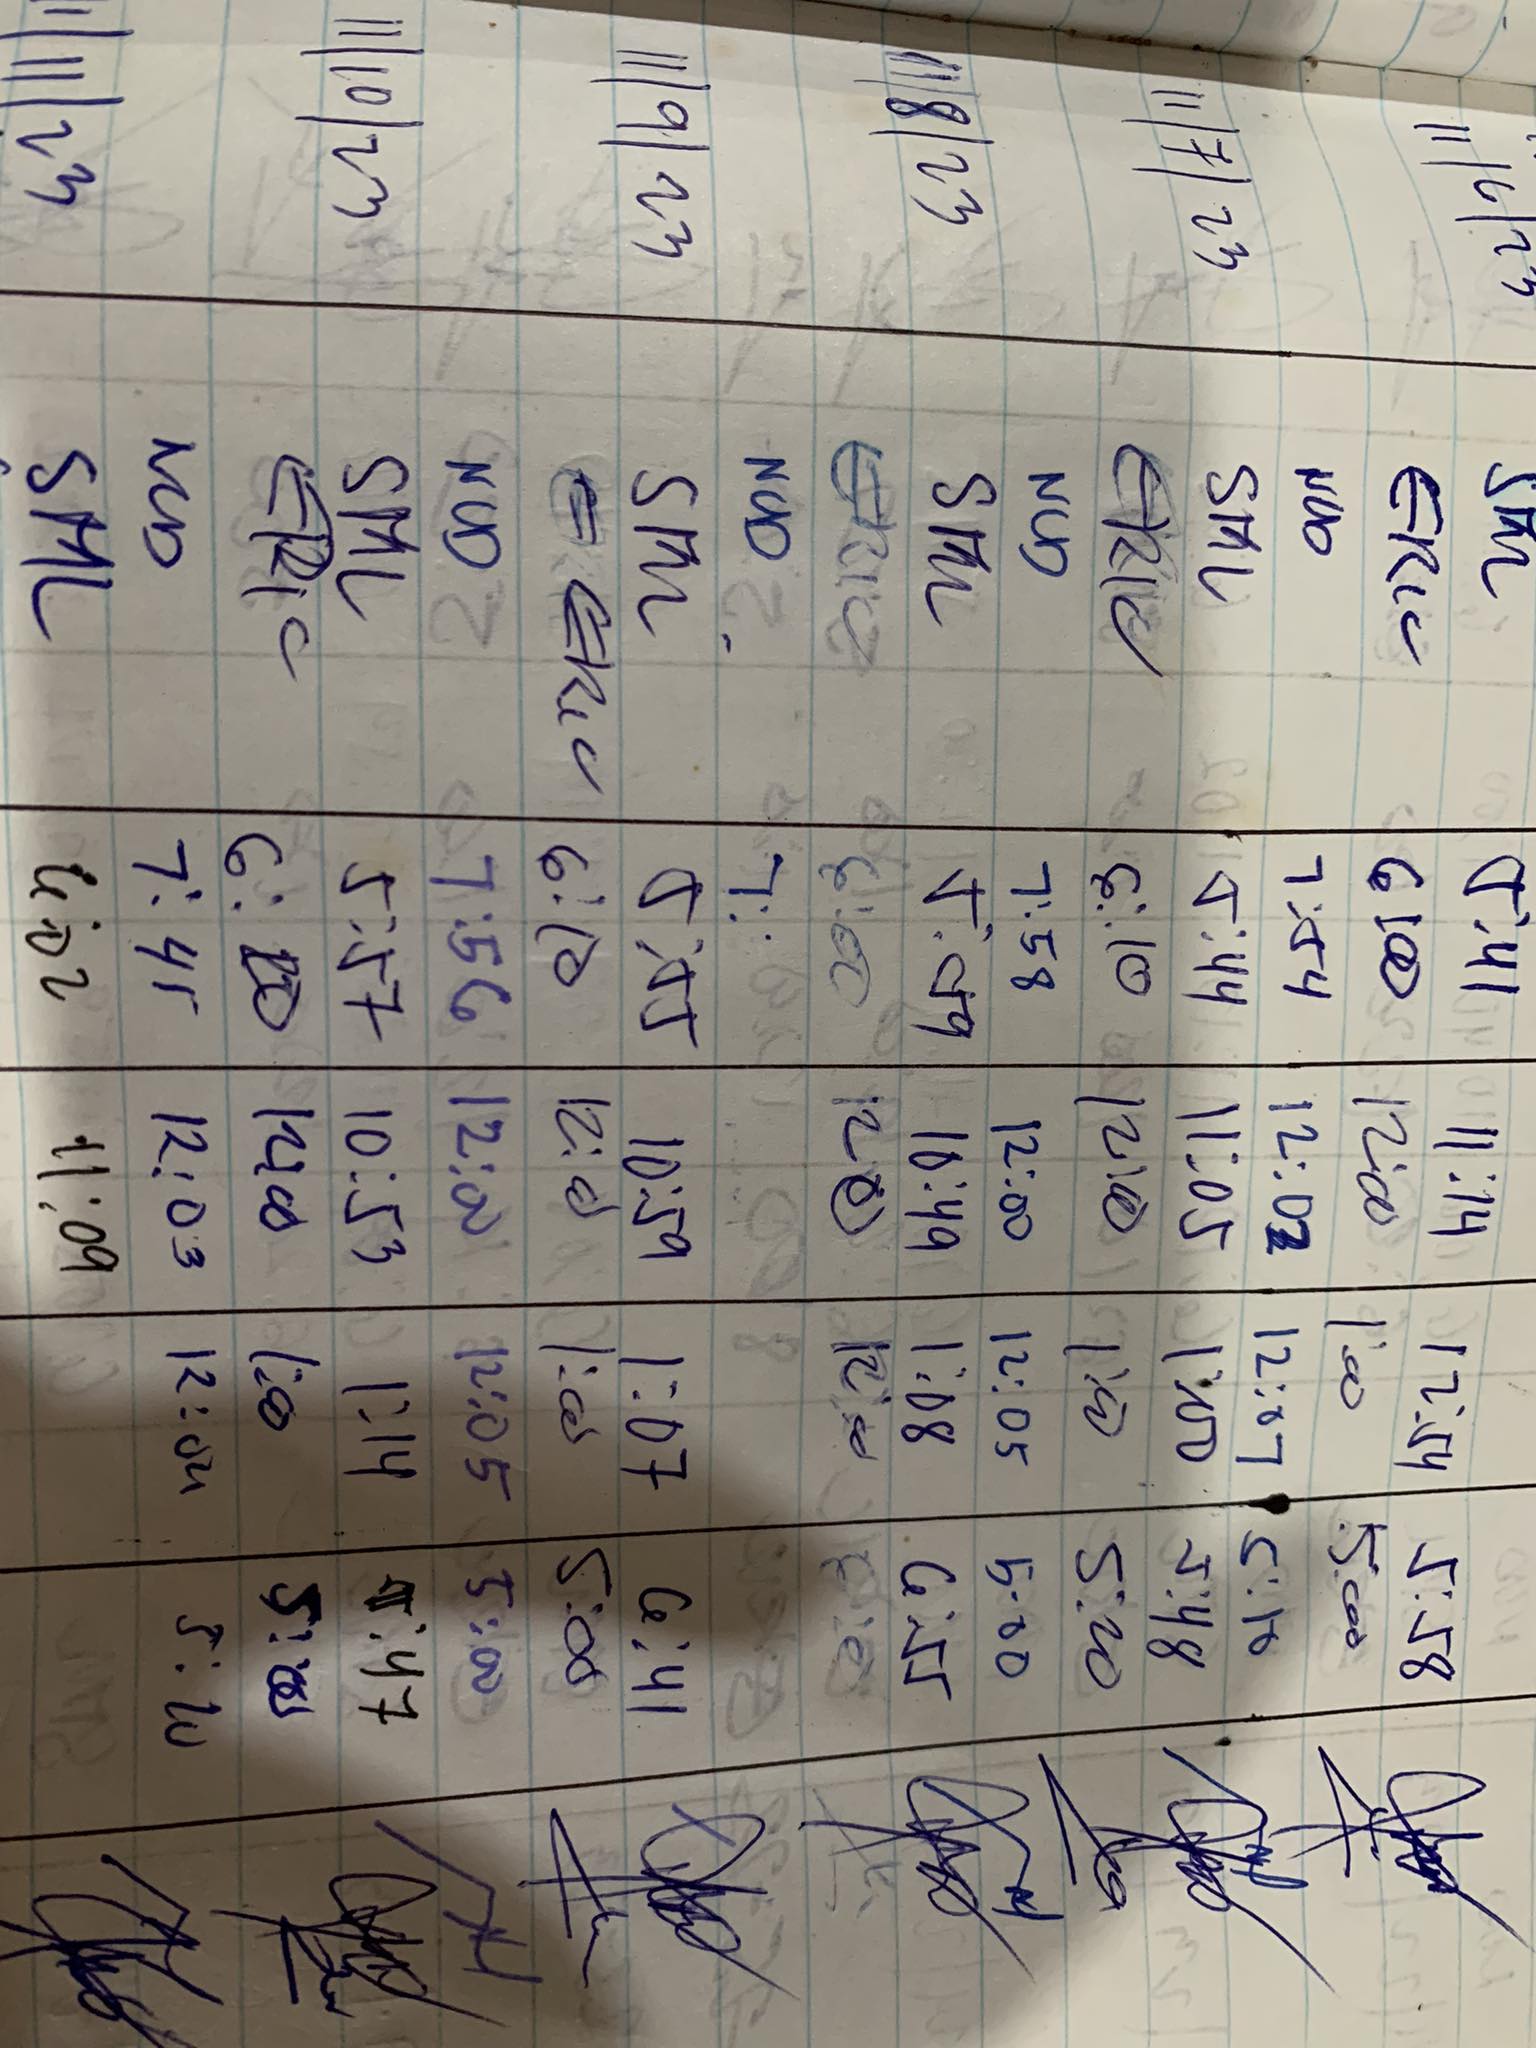 11/6/23 SML 5:41 11:14 12:54 5:58
ERIC 6:00 12:00 1:00 5:00
NUO 7:54 12:02 12:07 5:10
11/7/23 SML 5:44 11:05 1:00 5:48
ERIC 6:10 12:00 1:00 5:20
NUO 7:58 12:00 12:05 5:00
11/8/23 SML 5:59 10:49 1:08 6:55
ERIC 6:00 12:00 12:00
NUO 7:
11/9/23 SML 5:55 10:59 1:07 6:41
ERIC 6:10 12:00 1:00 5:00
NUO 7:56 12:00 12:05 5:00
11/10/23 SML 5:57 10:53 1:14 5:47
ERIC 6: 12:00 1:00 5:00
NUO 7:45 12:03 12:04
11/11/23 SML 6:02 11:09